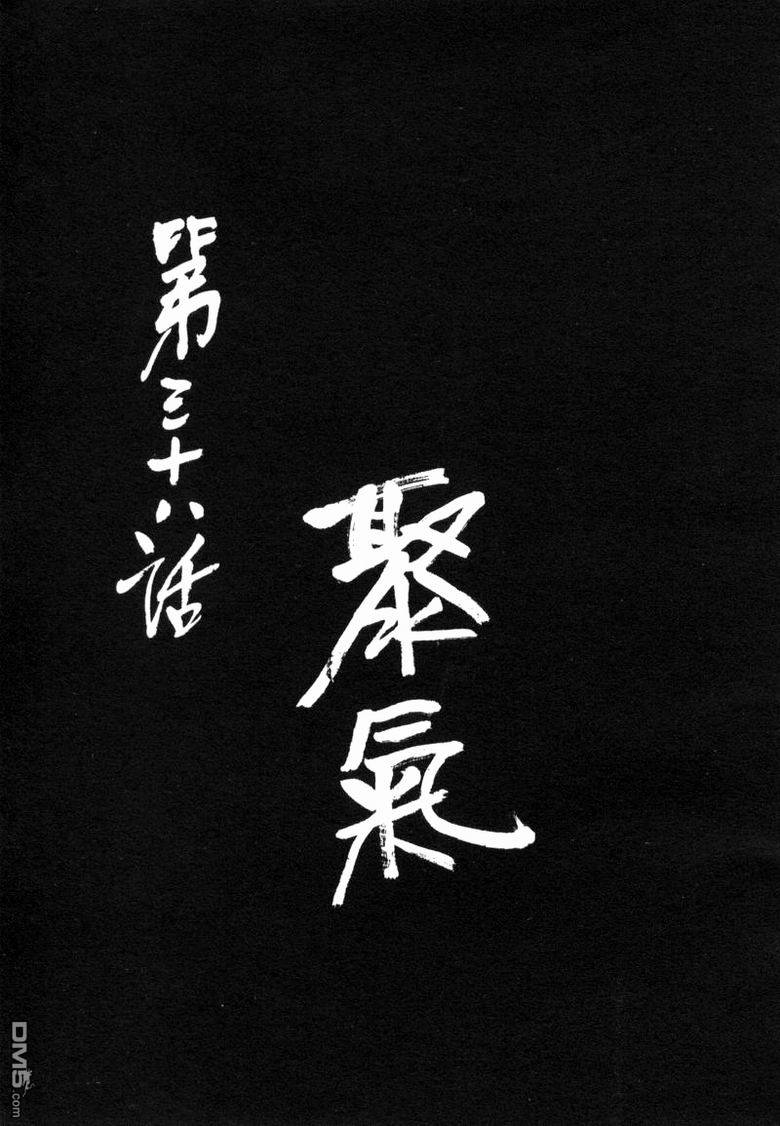 第三十八話
聚氣
DM5.com